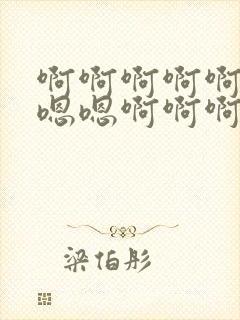 啊啊啊啊啊
嗯嗯啊啊啊
梁伯彤